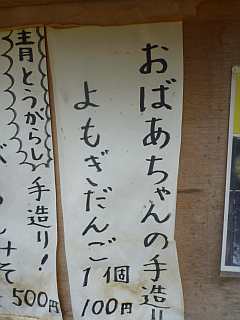 おばあちゃんの手造り
よもぎだんご
1個
100円
青とうがらし
手造り!
みそ
500円